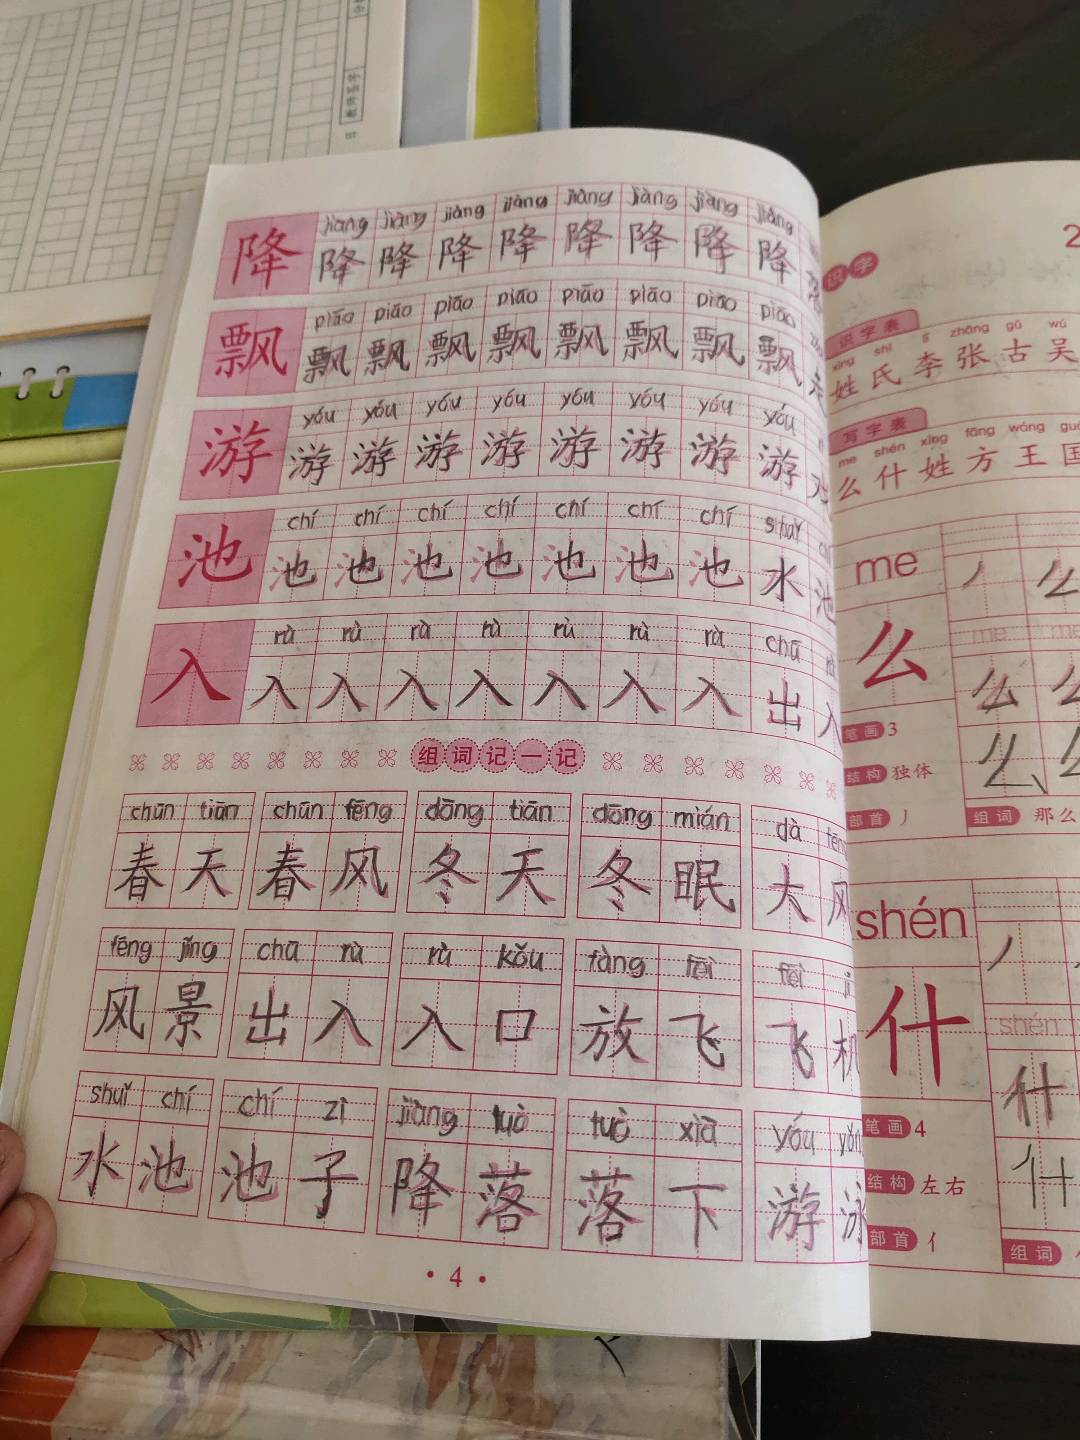 jiàng jiàng jiàng jiàng jiàng jiàng jiàng jiàng
降 降 降 降 降 降 降 降 降
piāo piāo piāo piāo piāo piāo piāo piāo
飘 飘 飘 飘 飘 飘 飘 飘 飘
yóu yóu yóu yóu yóu yóu yóu yóu
游 游 游 游 游 游 游 游 游
chí chí chí chí chí chí chí shuǐ
池 池 池 池 池 池 池 池 水 池
rù rù rù rù rù rù rù chū
入 入 入 入 入 入 入 入 出 入
组词记一记
chūn tiān chūn fēng dōng tiān dōng mián dà fēng
春天 春风 冬天 冬眠 大风
fēng jǐng chū rù rù kǒu fàng fēi fēi
风景 出入 入口 放飞 飞机
shuǐ chí chí zi jiàng luò luò xià yóu yǒng
水池 池子 降落 落下 游泳
· 4 ·
2
识字
识字表
xìng shì lǐ zhāng gǔ wú
姓 氏 李 张 古 吴
写字表
me shén xìng fāng wáng guó
么 什 姓 方 王 国
me
me me
么 么 么
笔画 3
结构 独体
部首 丿
么
组词 那么
shén
shén
什 什
笔画 4
结构 左右
什
部首 亻
组词